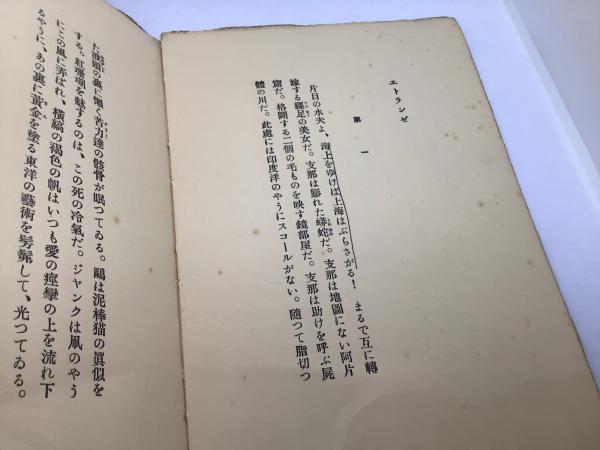 エトランゼ
第一
片目の水夫よ、海上をゆけば上海はぶらさがる! まるで互に轉
嫁する纏足の美女だ。支那は膨れた蟒蛇だ。支那は地圖にない阿片
窟だ。格鬪する二個の毛ものを映す鏡部屋だ。支那は助けを呼ぶ屍
體の川だ。此處には印度洋のやうにスコールがない。隨つて脂切つ
た波頭の裏に懶く苦力達の骸骨が眠つてゐる。鷗は泥棒猫の眞似を
する。紅珊瑚を魅するのは、この死の冷氣だ。ジャンクは凧のやう
にこの風に弄ばれ、橫縞の褐色の帆はいつも愛の痙攣の上を流れ下
るやうに、あの裏に黃金を塗る東洋の藝術を髣髴して、光つてゐる。